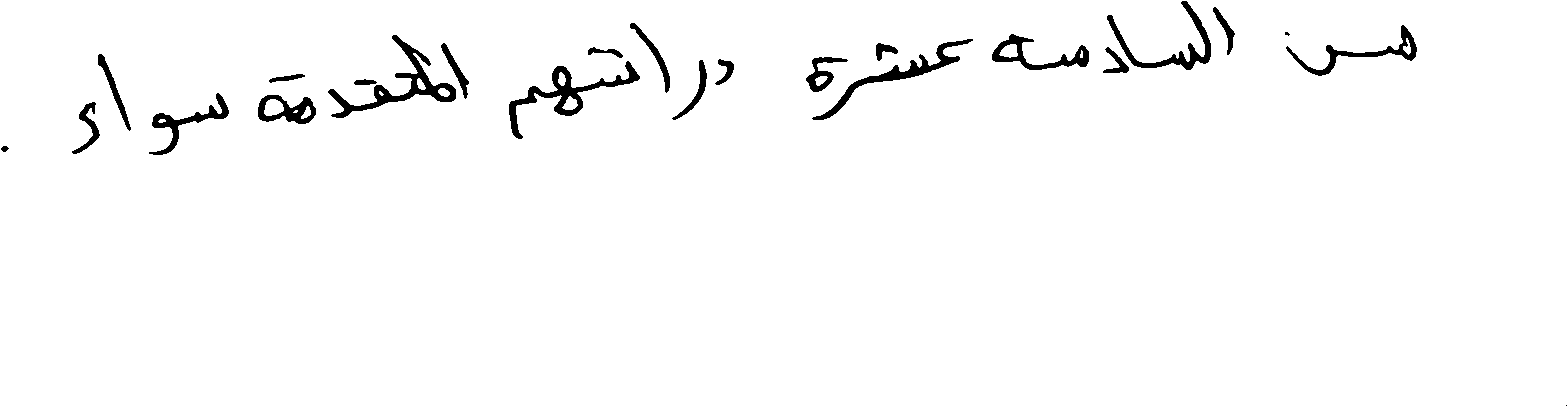 من السادسة عشرة دراستهم المتقدمة سواء .